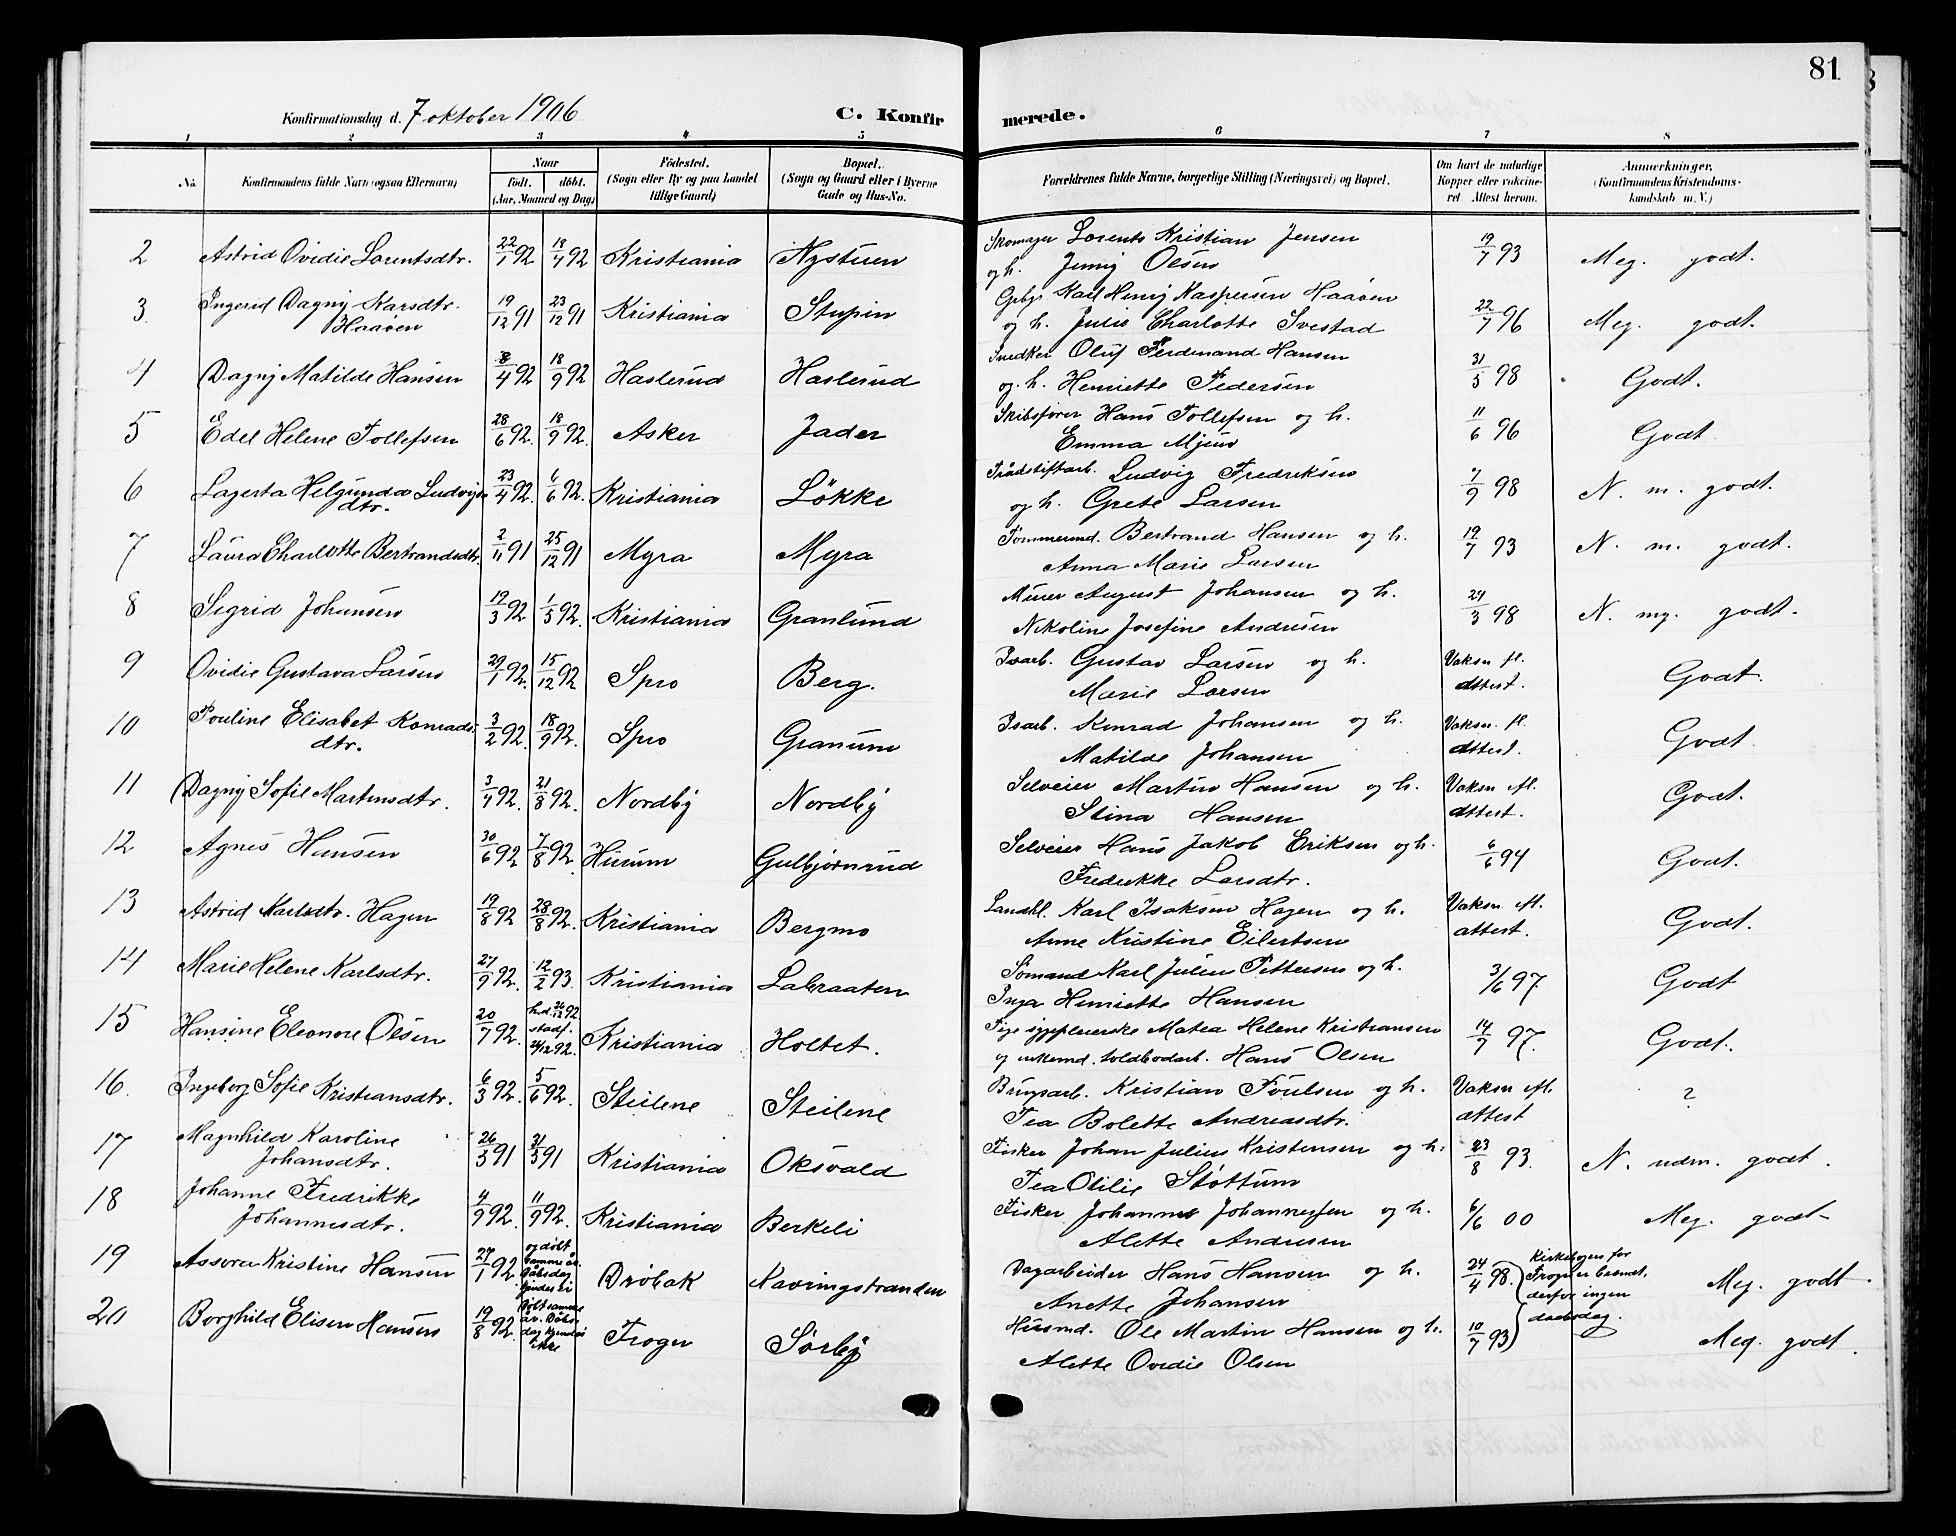 81
Konfirmationsdag d. 7 oktober 1906 C. Konfirmerede.
1 2 3 4 5 6 7 8
No. Konfirmandens fulde Navn (ogsaa Efternavn) Naar født. døbt. (Aar, Maaned og Dag) Fødested. (Sogn eller By og paa Landet tillige Gaard) Bopæl. (Sogn og Gaard eller i Byerne Gade og Hus-No. Forældrenes fulde Navne, borgerlige Stilling (Næringsvei) og Bopæl. Om havt de naturlige Kopper eller vakcineret Attest herom. Anmerkninger, (Konfirmandens Kristendomskundskab m. V.)
2 Astrid Ovidie Lorentsdtr. 22/1 92 18/4 92 Kristiania Nysturen Skomager Lorents Kristian Jensen og h. Jenny Olsen 19/7 93 Meg. godt.
3. Ingerid Dagny Karsdtr. Haaven 19/12 91 23/12 91 Kristiania Stupin Gbgr Karl Henry Kaspersen Haaven og h. Julie Charlotte Svestad 22/7 96 Meg. godt.
4 Dagny Matilde Hansen 8/4 92 18/9 92 Haslerud Haslerud Snedker Oluf Ferdinand Hansen og. h. Henriette Pedersen 31/5 98 Godt.
5 Edel Helene Tollefsen 28/6 92. 18/9 92. Asker Jader Skibsfører Hans Tollefsen og h. Emma Mjøus 11/6 96 Godt
6 Lagerta Helgunda Ludvigsdtr. 23/4 92. 6/6 92. Kristiania Løkke Trådstiftarb. Ludvig Fredriksen og h. Grete Larsen 7/9 98 N. m. godt.
7 Laura Charlotte Bertrandsdtr. 2/11 91 25/12 91 Myra Myra Tømmermd. Bertrand Hansen og h. Anna Marie Larsen 19/7 93 N. m. godt.
8 Sigrid Johansen 19/3 92 1/5 92. Kristiania Granlund Murer August Johansen og h. Nikoline Josefine Andresen 24/3 98 N. mg. godt.
9 Ovidie Gustava Larsen 29/1 92. 15/12 92 Spro Berg. Isarb. Gustav Larsen og h. Marie Larsen Vaksn. fl. attest. Godt.
10 Pouline Elisabet Konradsdtr. 3/2 92. 18/9 92. Spro Granum Isarb. Konrad Johansen og h. Matilde Johansen Vaksn. fl. attest. Godt.
11 Dagny Sofie Martinsdtr. 3/4 92. 21/8 92. Nordby Nordby Selveier Martin Hansen og h. Stina Hansen Vaksn efl. attest. Godt.
12 Agnes Hansen 30/6 92 7/8 92. Hurum Gulbjørnrud Selveier Hans Jakob Eriksen og h. Fredrikke Larsdtr. 6/6 94 Godt.
13 Astrid Karlsdtr. Hagen 19/8 92 28/8 92. Kristiania Bergmo Landhl. Karl Isaksen Hagen og h. Anne Kristine Eilertsen Vaksn efl. attest. Godt.
14 Marie Helene Karlsdtr. 27/9 92. 12/2 93. Kristiania Labraaten Sømand Karl Julius Pettersen og h. Inga Henriette Hansen 3/6 97 Godt
15 Hansine Eleonore Olsen 20/7 92. h.d. 26/12 92 stadf. 26/12 92. Kristiania Holtet. Pige sygepleierske Matea Helene Kristiansen og urkemd. toldbodarb. Hans Olsen 14/7 97. Godt.
16. Ingeborg Sofie Kristiansdtr. 6/3 92. 5/6 92. Steilene Steilene Brugsarb. Kristian Poulsen og h. Tea Bolette Andreasdtr. Vaksn efl. attest ?
17 Magnhild Karoline Johansdtr. 26/3 91 31/5 91 Kristiania Oksvald Fisker Johan Julius Kristensen og h. Tea Otilie Støttum 23/8 93. N. udm. godt.
18 Johanne Fredrikke Johannesdtr. 4/9 92. 11/9 92. Kristiania Berkeli Fisker Johannes Johannessen og h. Alette Andresen 6/6 00 Meg. godt
19 Assora Kristine Hansen 27/1 92. og døbt samme år. Dåbsdag kjendes ei Drøbak Navringstranden Dagarbeider Hans Hansen og h. Anette Johansen 24/4 98. Kirkebogen for Frogner brændt. derfor ingen daabsdag. Meg. godt.
20 Borghild Elisen Hansen 19/8 92. Døbt samme år. Dåbsdag kjendes ikke Frogn Sørby Husmd. Ole Martin Hansen og h. Alette Ovidie Olsen 10/7 93 Meg. godt.